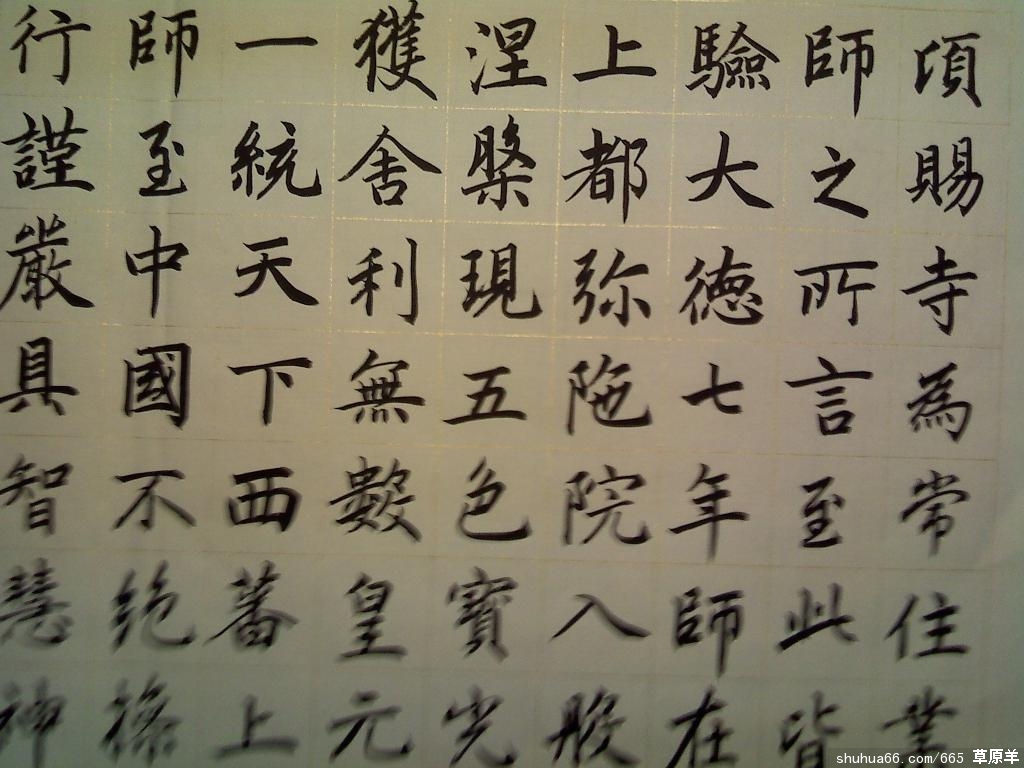 頃賜寺為常住業
師之所言至此皆
驗大德七年師在
上都弥陁院入般
涅槃現五色寶光
獲舍利無數皇元
一統天下西蕃上
師至中國不絶操
行謹嚴具智慧神
shuhua66.com/665 草原羊